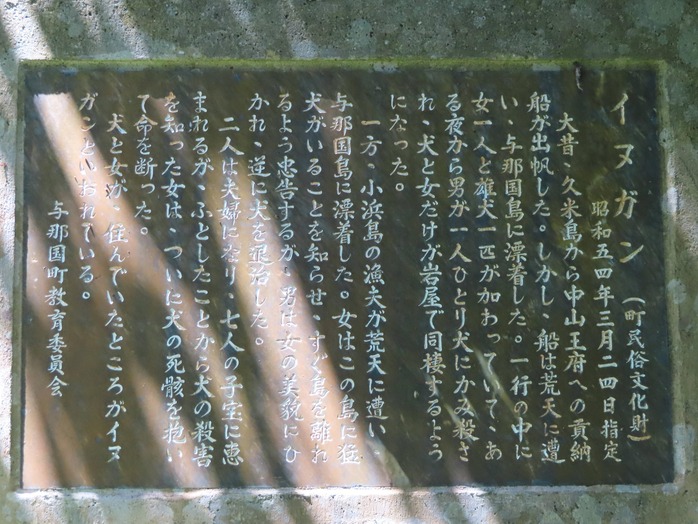 イヌガン(町民俗文化財)
昭和五四年三月二四日指定
大昔、久米島から中山王府への貢納
船が出帆した。しかし、船は荒天に遭
い、与那国島に漂着した。一行の中に
女一人と雄犬一匹が加わっていて、あ
る夜から男が一人ひとり犬にかみ殺さ
れ、犬と女だけが岩屋で同棲するよう
になった。
一方、小浜島の漁夫が荒天に遭い、
与那国島に漂着した。女はこの島に猛
犬がいることを知らせ、すぐ島を離れ
るよう忠告するが、男は女の美貌にひ
かれ、逆に犬を退治した。
二人は夫婦になり、七人の子宝に恵
まれるが、ふとしたことから犬の殺害
を知った女は、ついに犬の死骸を抱い
て命を断った。
犬と女が、住んでいたところがイヌ
ガンといおれている。
与那国町教育委員会